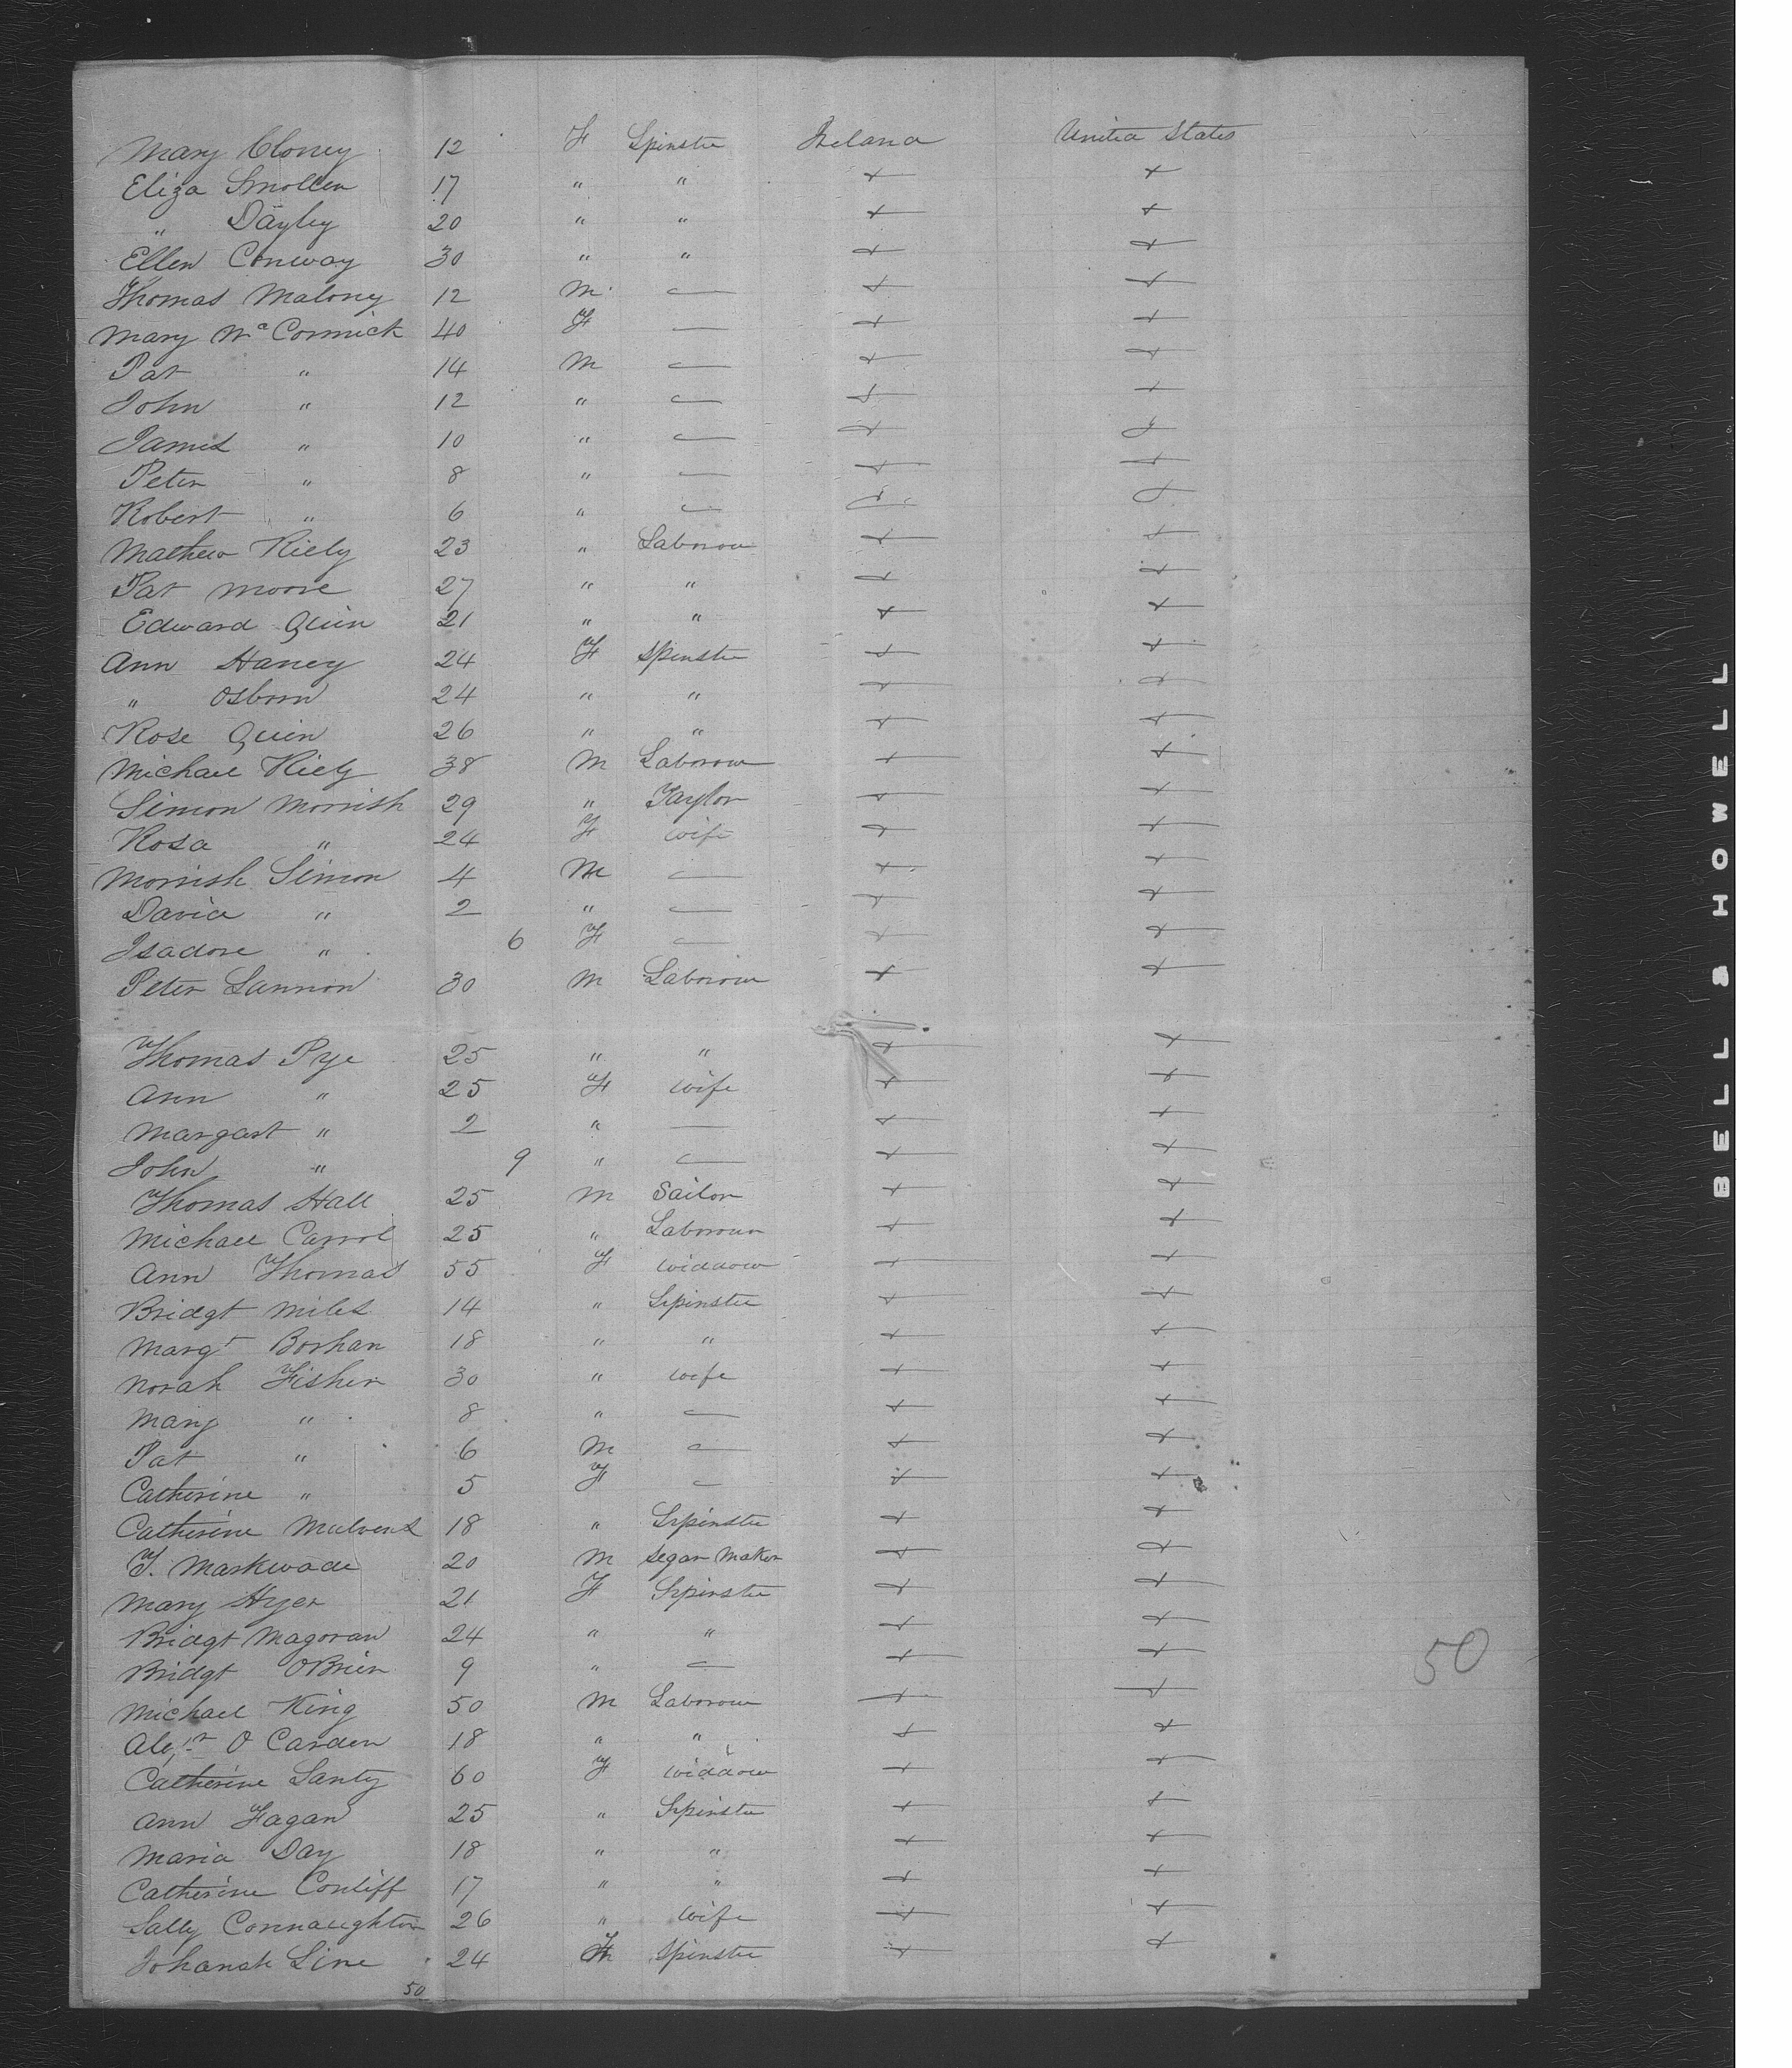 Mary Cloney 12 F Spinster Ireland United States
Eliza Smollen 17 " " + +
" Dayley 20 " " + +
Ellen Conway 30 " " + +
Thomas Malony 12 M — + +
Mary McCormick 40 F — + +
Pat " 14 M — + +
John " 12 " — + +
James " 10 " — + +
Peter " 8 " — + +
Robert " 6 " — + +
Mathew Kiely 23 " Laborour + +
Pat Moore 27 " " + +
Edward Quin 21 " " + +
Ann Haney 24 F Spinster + +
" Osborn 24 " " + +
Rose Quin 26 " " + +
Michael Kiely 38 M Laborour + +
Simon Morrish 29 " Taylor + +
Rosa " 24 F Wife + +
Morrish Simon 4 M — + +
David " 2 " — + +
Isadore " 6 F — + +
Peter Lannon 30 M Laborour + +
Thomas Pye 25 " " + +
Ann " 25 F Wife + +
Margart " 2 " — + +
John " 9 " — + +
Thomas Hall 25 M Sailor + +
Michael Carrol 25 " Laborour + +
Ann Thomas 55 F Widdow + +
Bridgt Miles 14 " Spinster + +
Margt Borhan 18 " " + +
Norah Fisher 30 " Wife + +
Mary " 8 " — + +
Pat " 6 M — + +
Catherine " 5 F — + +
Catherine 18 " Spinster + +
T. Markwade 20 M Segar Maker + +
Mary Hyer 21 F Spinster + +
Bridgt Magoran 24 " " + +
Bridgt OBrien 9 " — + +
Michael King 50 M Laborour + +
O Carden 18 " " + +
Catherine Santy 60 F Widdow + +
Ann Fagan 25 " Spinster + +
Maria Day 18 " " + +
Catherine Conliff 17 " " + +
Sally Connaughton 26 " Wife + +
Johanah Line 24 F Spinster + +
50
50
BELL & HOWELL